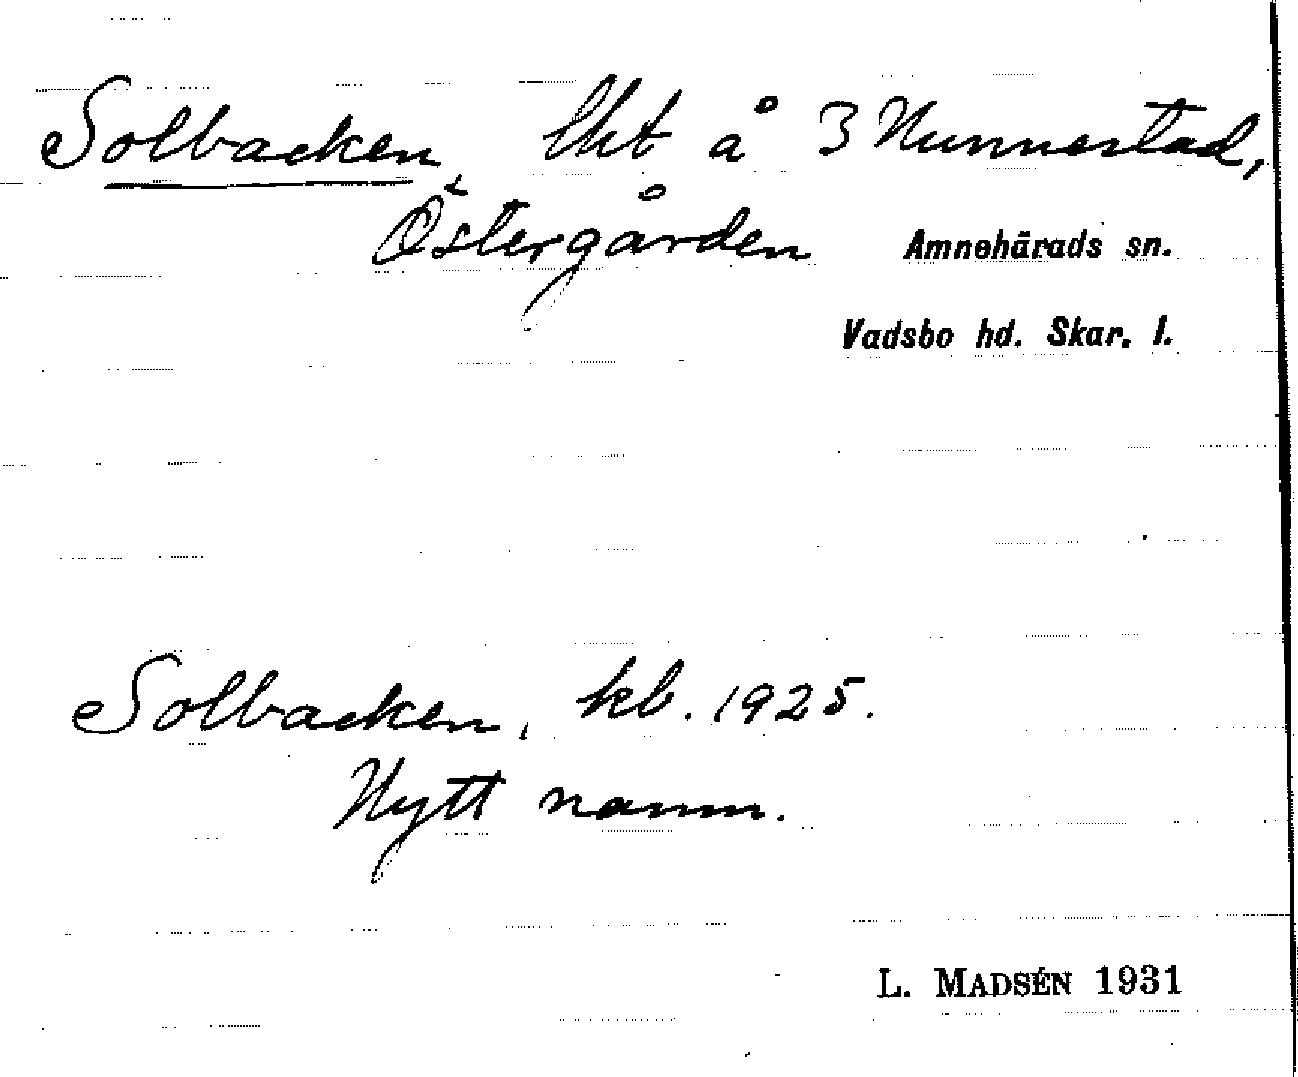 Solbacken, lht å 3 Nunnestad,
Östergården Amnehärads sn.
Vadsbo hd. Skar. l.
Solbacken, kb. 1925.
Nytt namn.
L. MADSÉN 1931